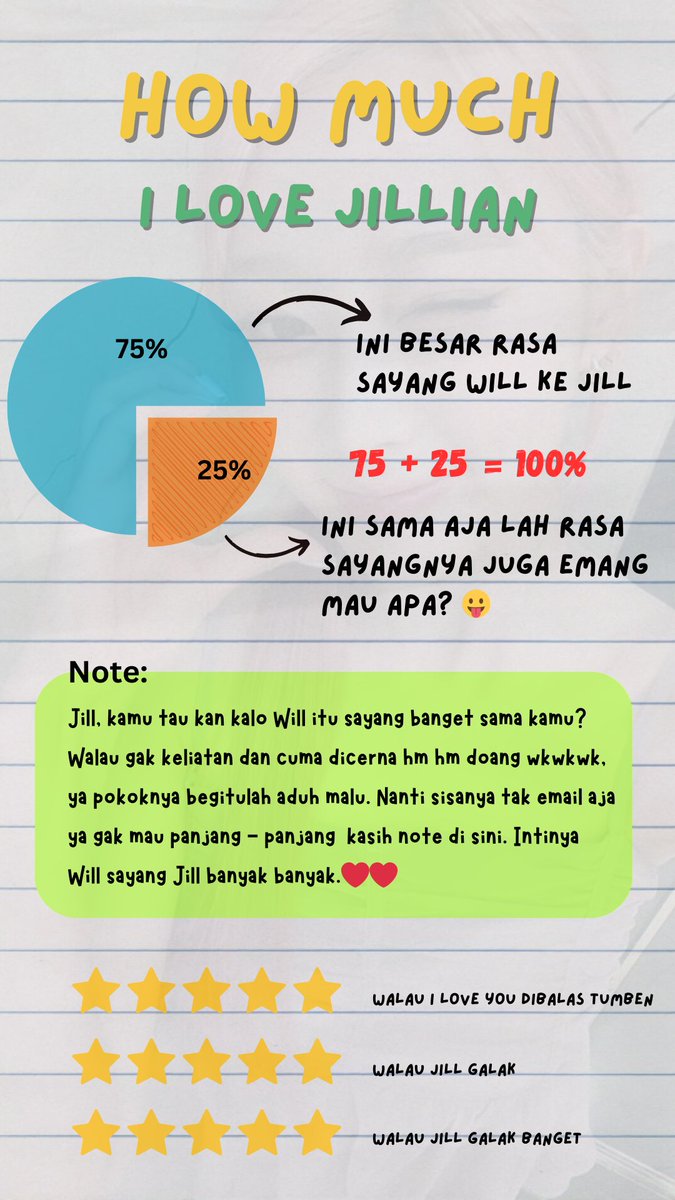 HOW MUCH
I LOVE JILLIAN
75%
INI BESAR RASA
SAYANG WILL KE JILL
25%
75 + 25 = 100%
INI SAMA AJA LAH RASA
SAYANGNYA JUGA EMANG
MAU APA? 😛
Note:
Jill, kamu tau kan kalo Will itu sayang banget sama kamu?
Walau gak keliatan dan cuma dicerna hm hm doang wkwkwk,
ya pokoknya begitulah aduh malu. Nanti sisanya tak email aja
ya gak mau panjang - panjang kasih note di sini. Intinya
Will sayang Jill banyak banyak.❤️❤️
WALAU I LOVE YOU DIBALAS TUMBEN
WALAU JILL GALAK
WALAU JILL GALAK BANGET